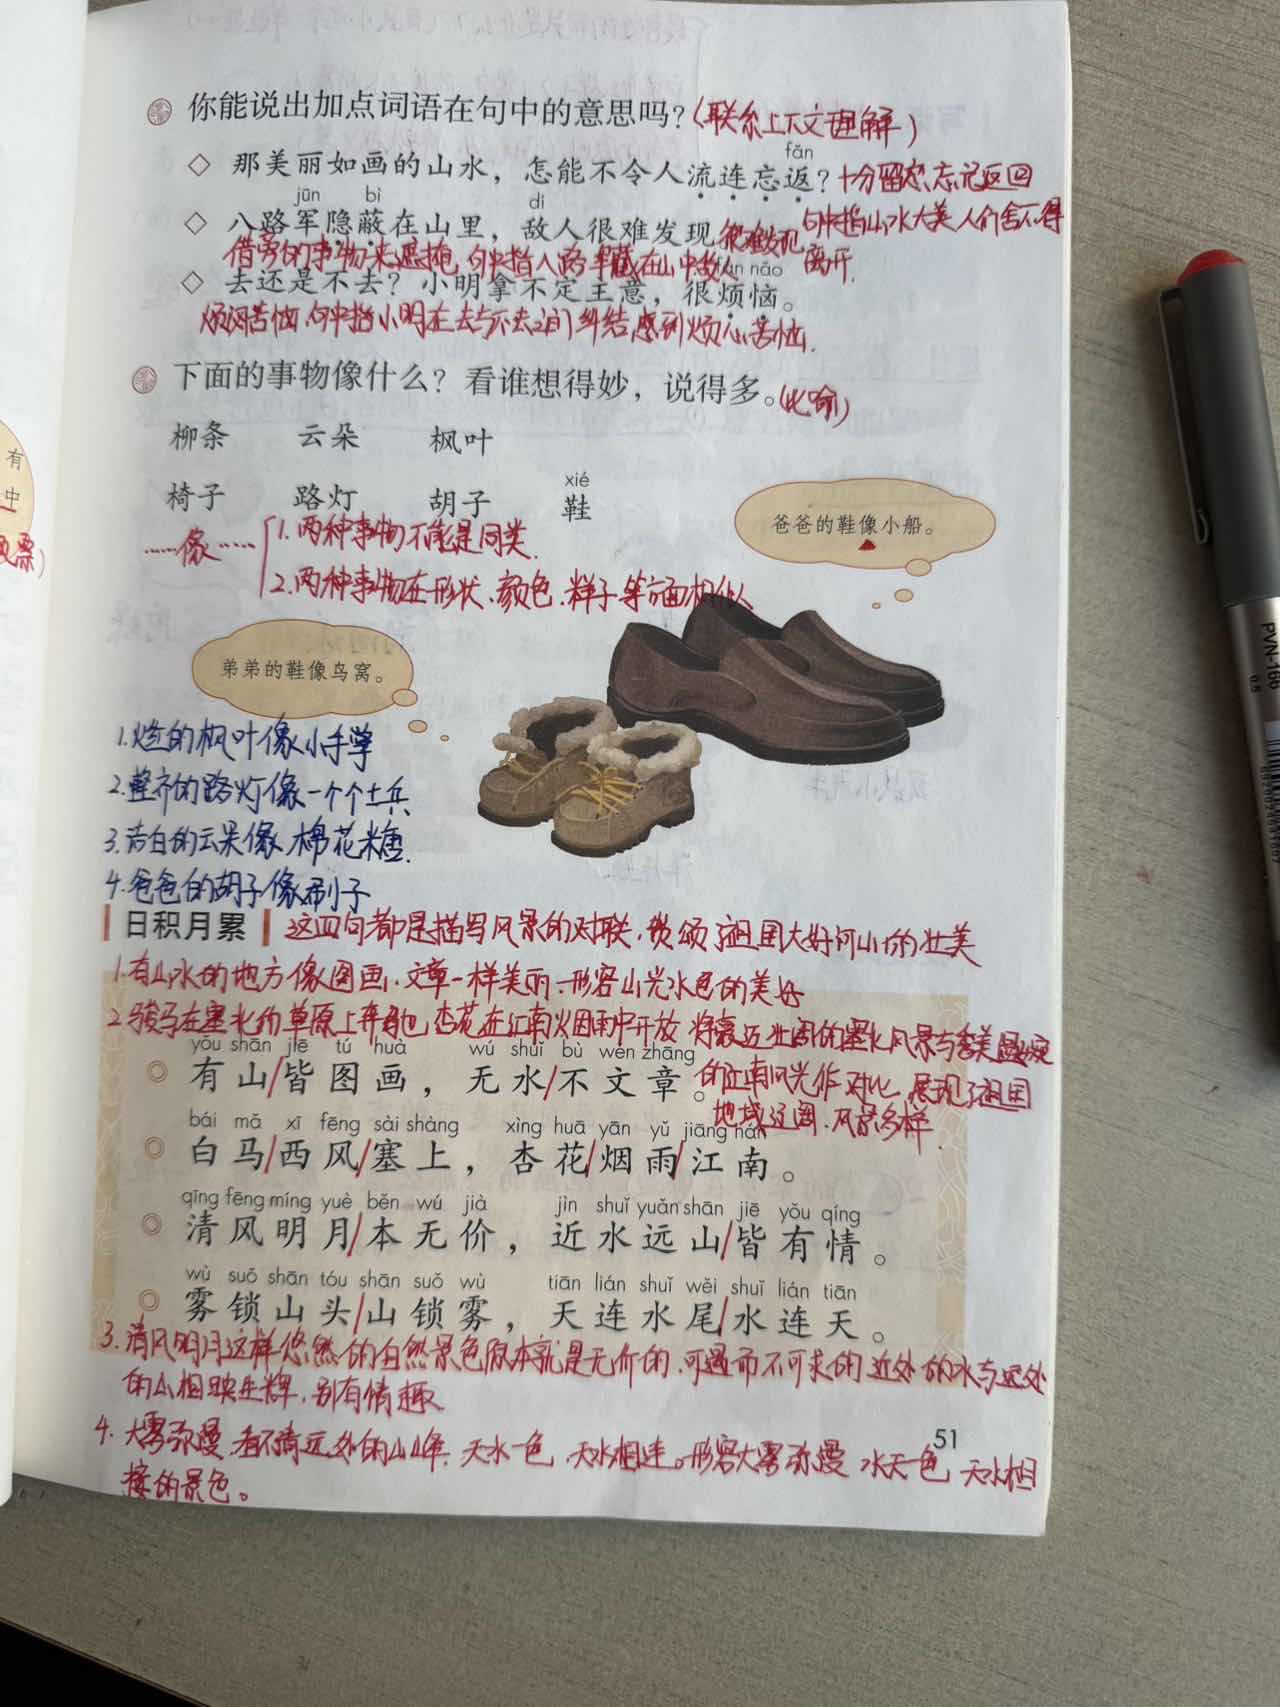 你能说出加点词语在句中的意思吗？（联系上下文理解）
fǎn
◇ 那美丽如画的山水，怎能不令人流连忘返？十分留恋,忘记返回
jūn bì dí
句中指山水太美人们舍不得离开.
◇ 八路军隐蔽在山里，敌人很难发现 很难发现
借旁的事物来遮掩,句中指八路军藏在山中敌人
fán nǎo
◇ 去还是不去？小明拿不定主意，很烦恼。
烦闷苦恼,句中指小明在去与不去之间纠结感到烦心苦恼.
下面的事物像什么？看谁想得妙，说得多。（比喻）
柳条 云朵 枫叶
xié
椅子 路灯 胡子 鞋
爸爸的鞋像小船。
……像……
1.两种事物不能是同类.
2.两种事物在形状、颜色、样子等方面相似
弟弟的鞋像鸟窝。
1.火红的枫叶像小手掌
2.整齐的路灯像一个个士兵
3.洁白的云朵像棉花糖.
4.爸爸的胡子像刷子
日积月累 这四句都是描写风景的对联,赞颂祖国大好河山的壮美
1.有山水的地方像图画、文章一样美丽.形容山光水色的美好
2.骏马在塞北的草原上奔驰 杏花在江南烟雨中开放 将豪迈壮阔的塞北风景与秀美温婉
的江南风光作对比,展现了祖国
地域辽阔、风景多样.
yǒu shān jiē tú huà wú shuǐ bù wén zhāng
◎ 有山/皆图画，无水/不文章。
bái mǎ xī fēng sài shàng xìng huā yān yǔ jiāng nán
◎ 白马/西风/塞上，杏花/烟雨/江南。
qīng fēng míng yuè běn wú jià jìn shuǐ yuǎn shān jiē yǒu qíng
◎ 清风明月/本无价，近水远山/皆有情。
wù suǒ shān tóu shān suǒ wù tiān lián shuǐ wěi shuǐ lián tiān
◎ 雾锁山头/山锁雾，天连水尾/水连天。
3.清风明月这样悠然的自然景色原本就是无价的,可遇而不可求的 近处的水与远处
的山相映生辉,别有情趣
4.大雾弥漫 看不清远处的山峰.天水一色,天水相连。形容大雾弥漫 水天一色 天水相
接的景色。
51
有
中
PVN-166
0.5